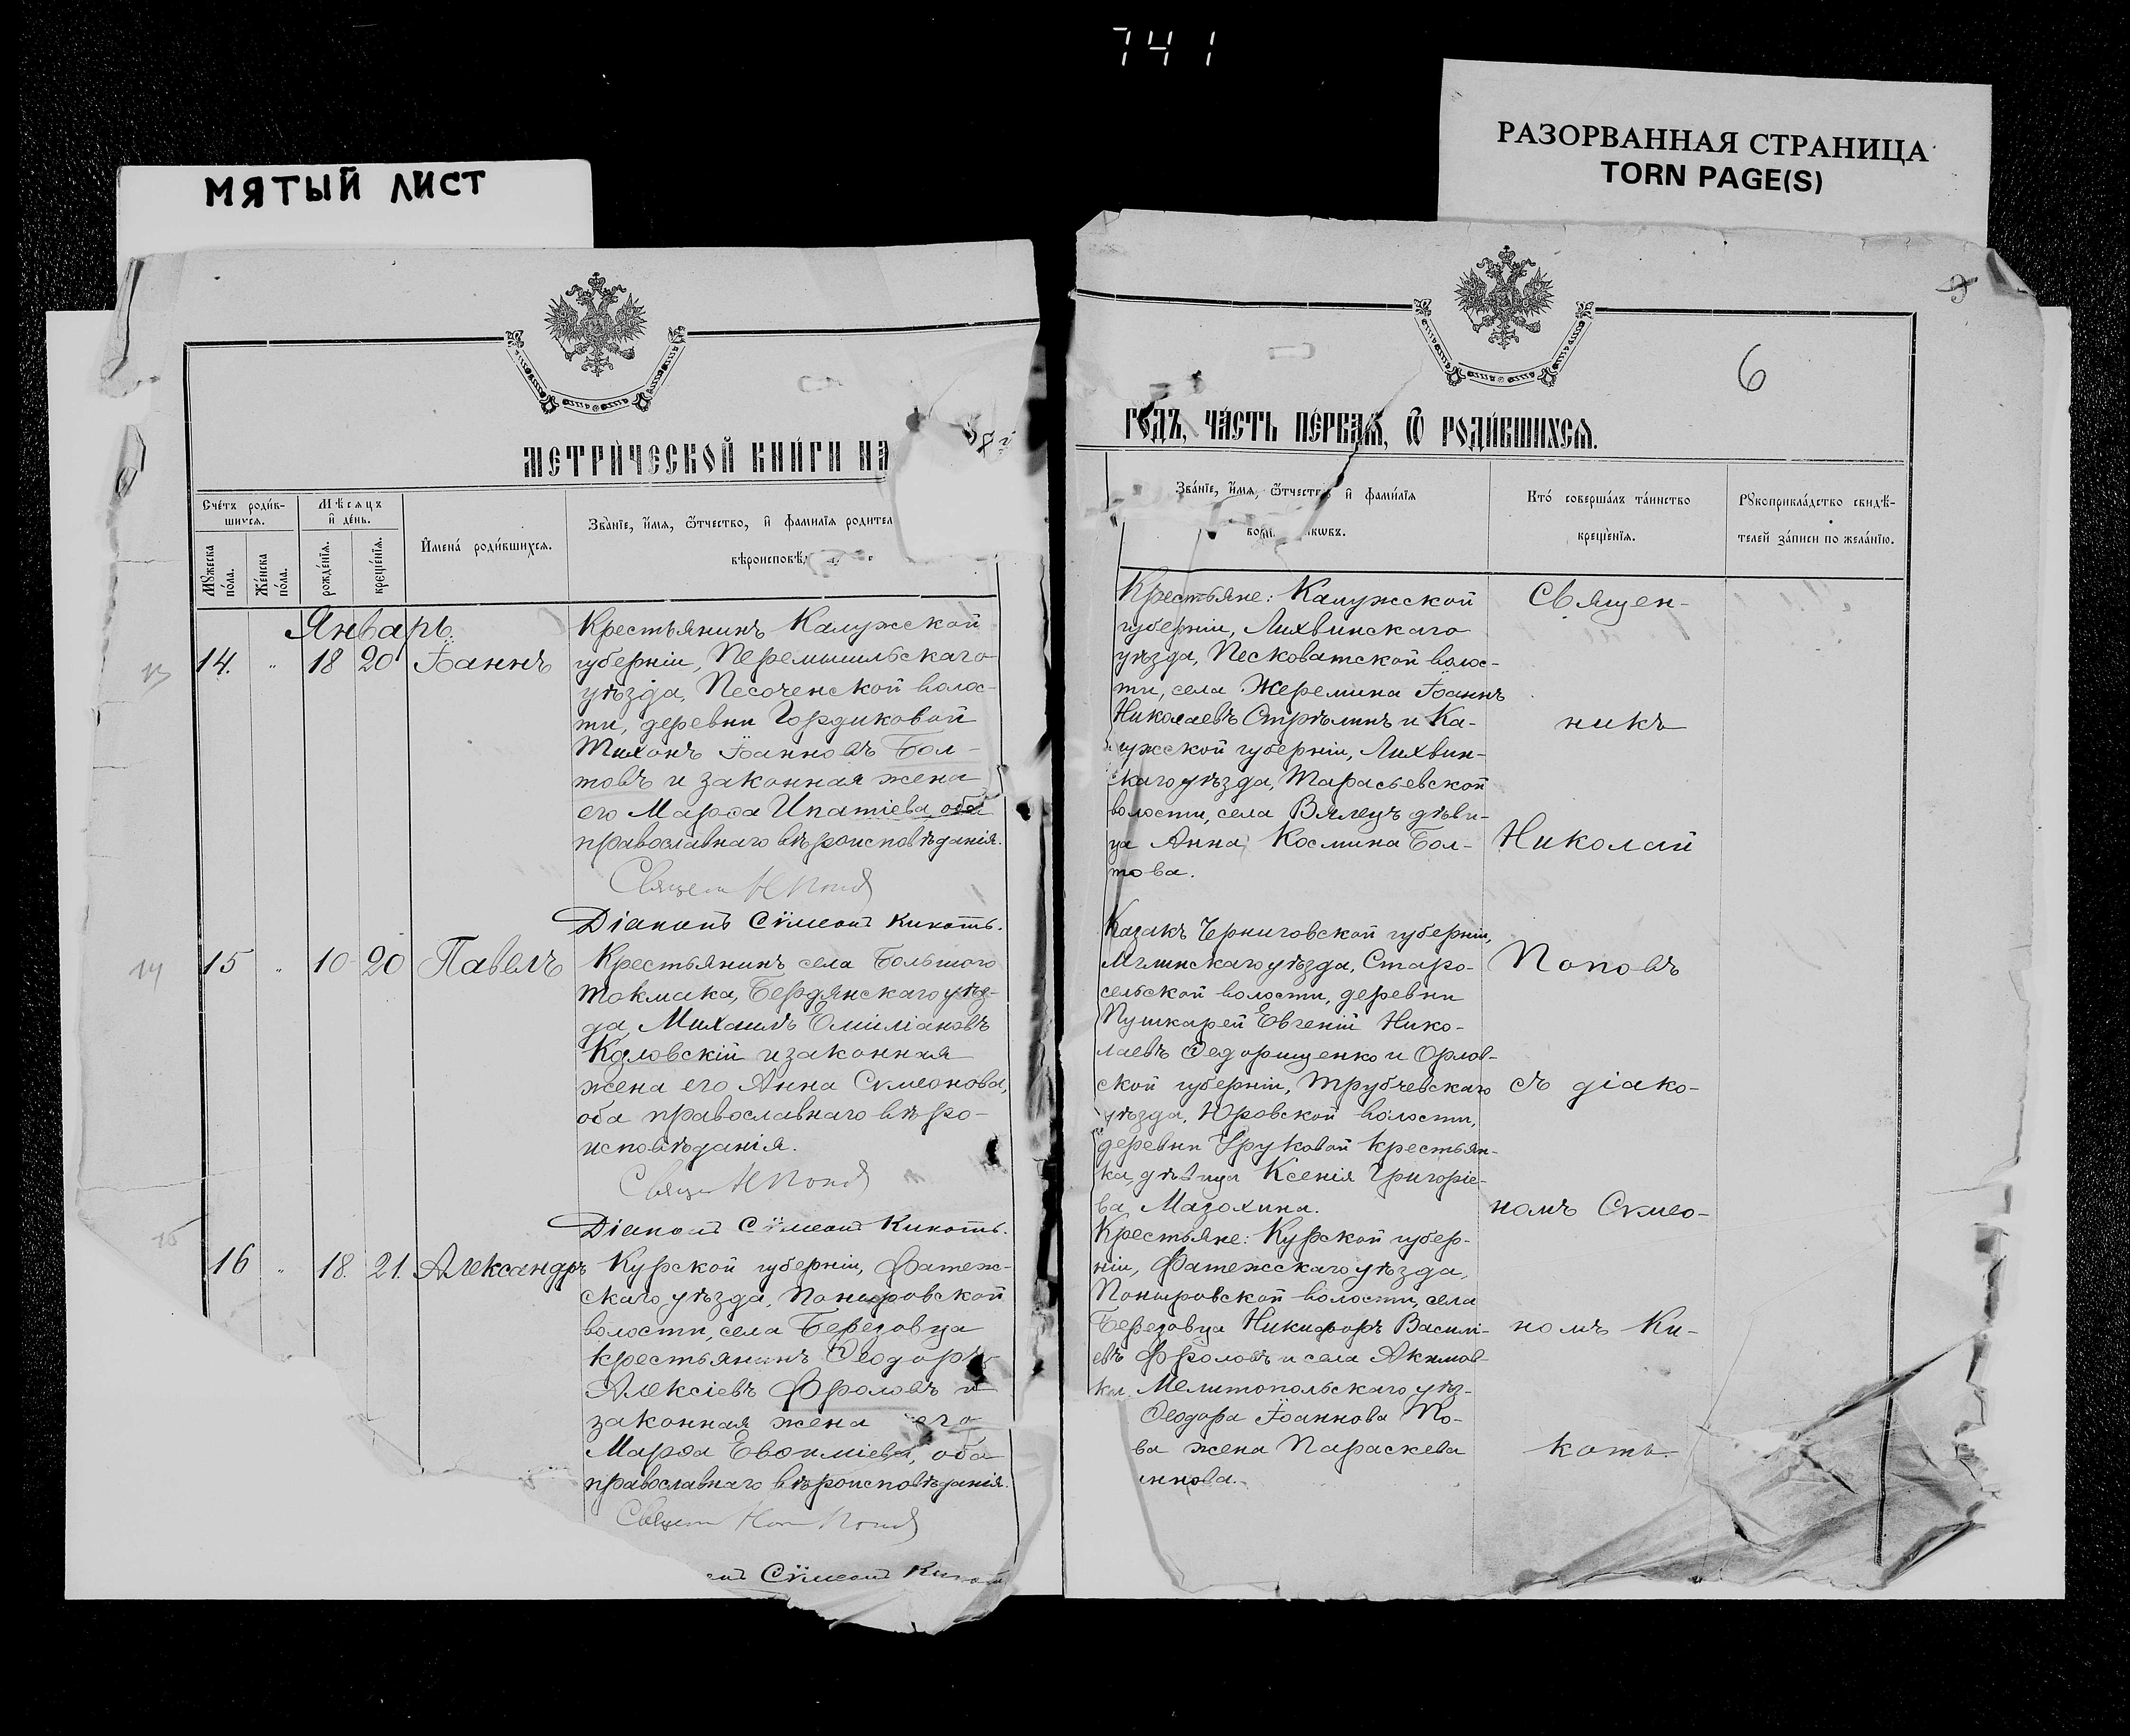 741
МЯТЫЙ ЛИСТ
РАЗОРВАННАЯ СТРАНИЦА
TORN PAGE(S)
6
МЕТРИ́ЧЕСКОЙ КНИ́ГИ НА
ГО́ДЪ, ЧА́СТЬ ПЕ́РВАѦ, Ѿ РОДИ́ВШИХСѦ.
Сче́тъ роди́в-
шихсѧ.
Мѣ́сѧцъ
и҆ де́нь.
Мꙋ́жеска
по́ла.
Же́нска
по́ла.
рожде́нїѧ.
креще́нїѧ.
И҆мена́ роди́вшихсѧ.
Зва́нїе, и҆́мѧ, ѻ҆́тчество, и҆ фами́лїѧ родител
вѣроисповѣ
Зва́нїе, и҆́мѧ, ѻ҆́тчество и҆ фами́лїѧ
Кто́ соверша́лъ та́инство
креще́нїѧ.
Рꙋкоприкла́дство свидѣ́-
телей за́писи по жела́нїю.
Январь.
14. " 18 20 Іоаннъ
Крестьянинъ Калужской
губерніи, Перемышльскаго
уѣзда, Песоченской волос-
ти, деревни Гордиковой
Тихонъ Іоанновъ Бол-
товъ и законная жена
его Марѳа Ипатіева, оба
православнаго вѣроисповѣданія.
Священ Н Попов
Діаконъ Сѵмеонъ Кикоть.
Крестьяне: Калужской
губерніи, Лихвинскаго
уѣзда, Песковатской волос-
ти, села Жеремина Іоаннъ
Николаевъ Стрѣлинъ и Ка-
лужской губерніи, Лихвин-
скаго уѣзда, Тарасьевской
волости, села Вялецъ дѣви-
ца Анна Космина Бол-
това.
15 " 10 20 Павелъ
Крестьянинъ села Большого
Токмака, Бердянскаго уѣз-
да, Михаилъ Емиліановъ
Козловскій и законная
жена его Анна Сѵмеонова,
оба православнаго вѣро-
исповѣданія.
Свящ Н Попов
Діаконъ Сѵмеонъ Кикоть.
Казакъ Черниговской губерніи,
Мглинскаго уѣзда, Старо-
сельской волости, деревни
Пушкарей Евгеній Нико-
лаевъ Ѳедорищенко и Орлов-
ской губерніи, Трубчевскаго
уѣзда, Юровской волости,
деревни Груковой крестьян-
ка, дѣвица Ксенія Григоріе-
ва Мазохина.
16 " 18. 21. Александръ
Курской губерніи, Фатеж-
скаго уѣзда, Понировской
волости, села Березовца
крестьянинъ Ѳеодоръ
Алексіевъ Фроловъ и
законная жена его
Марѳа Евѳиміева, оба
православнаго вѣроисповѣданія.
Священ Попов
Сѵмеонъ Кикоть
Крестьяне: Курской губер-
ніи, Фатежскаго уѣзда,
Понировской волости, села
Березовца Никифоръ Василі-
евъ Фроловъ и села Акимов-
ки, Мелитопольскаго уѣз-
Ѳеодора Іоаннова По-
ва жена Параскева
ннова.
Священ-
никъ
Николай
Поповъ
съ діако-
номъ Сѵмео-
номъ Ки-
коть.
13
14
15